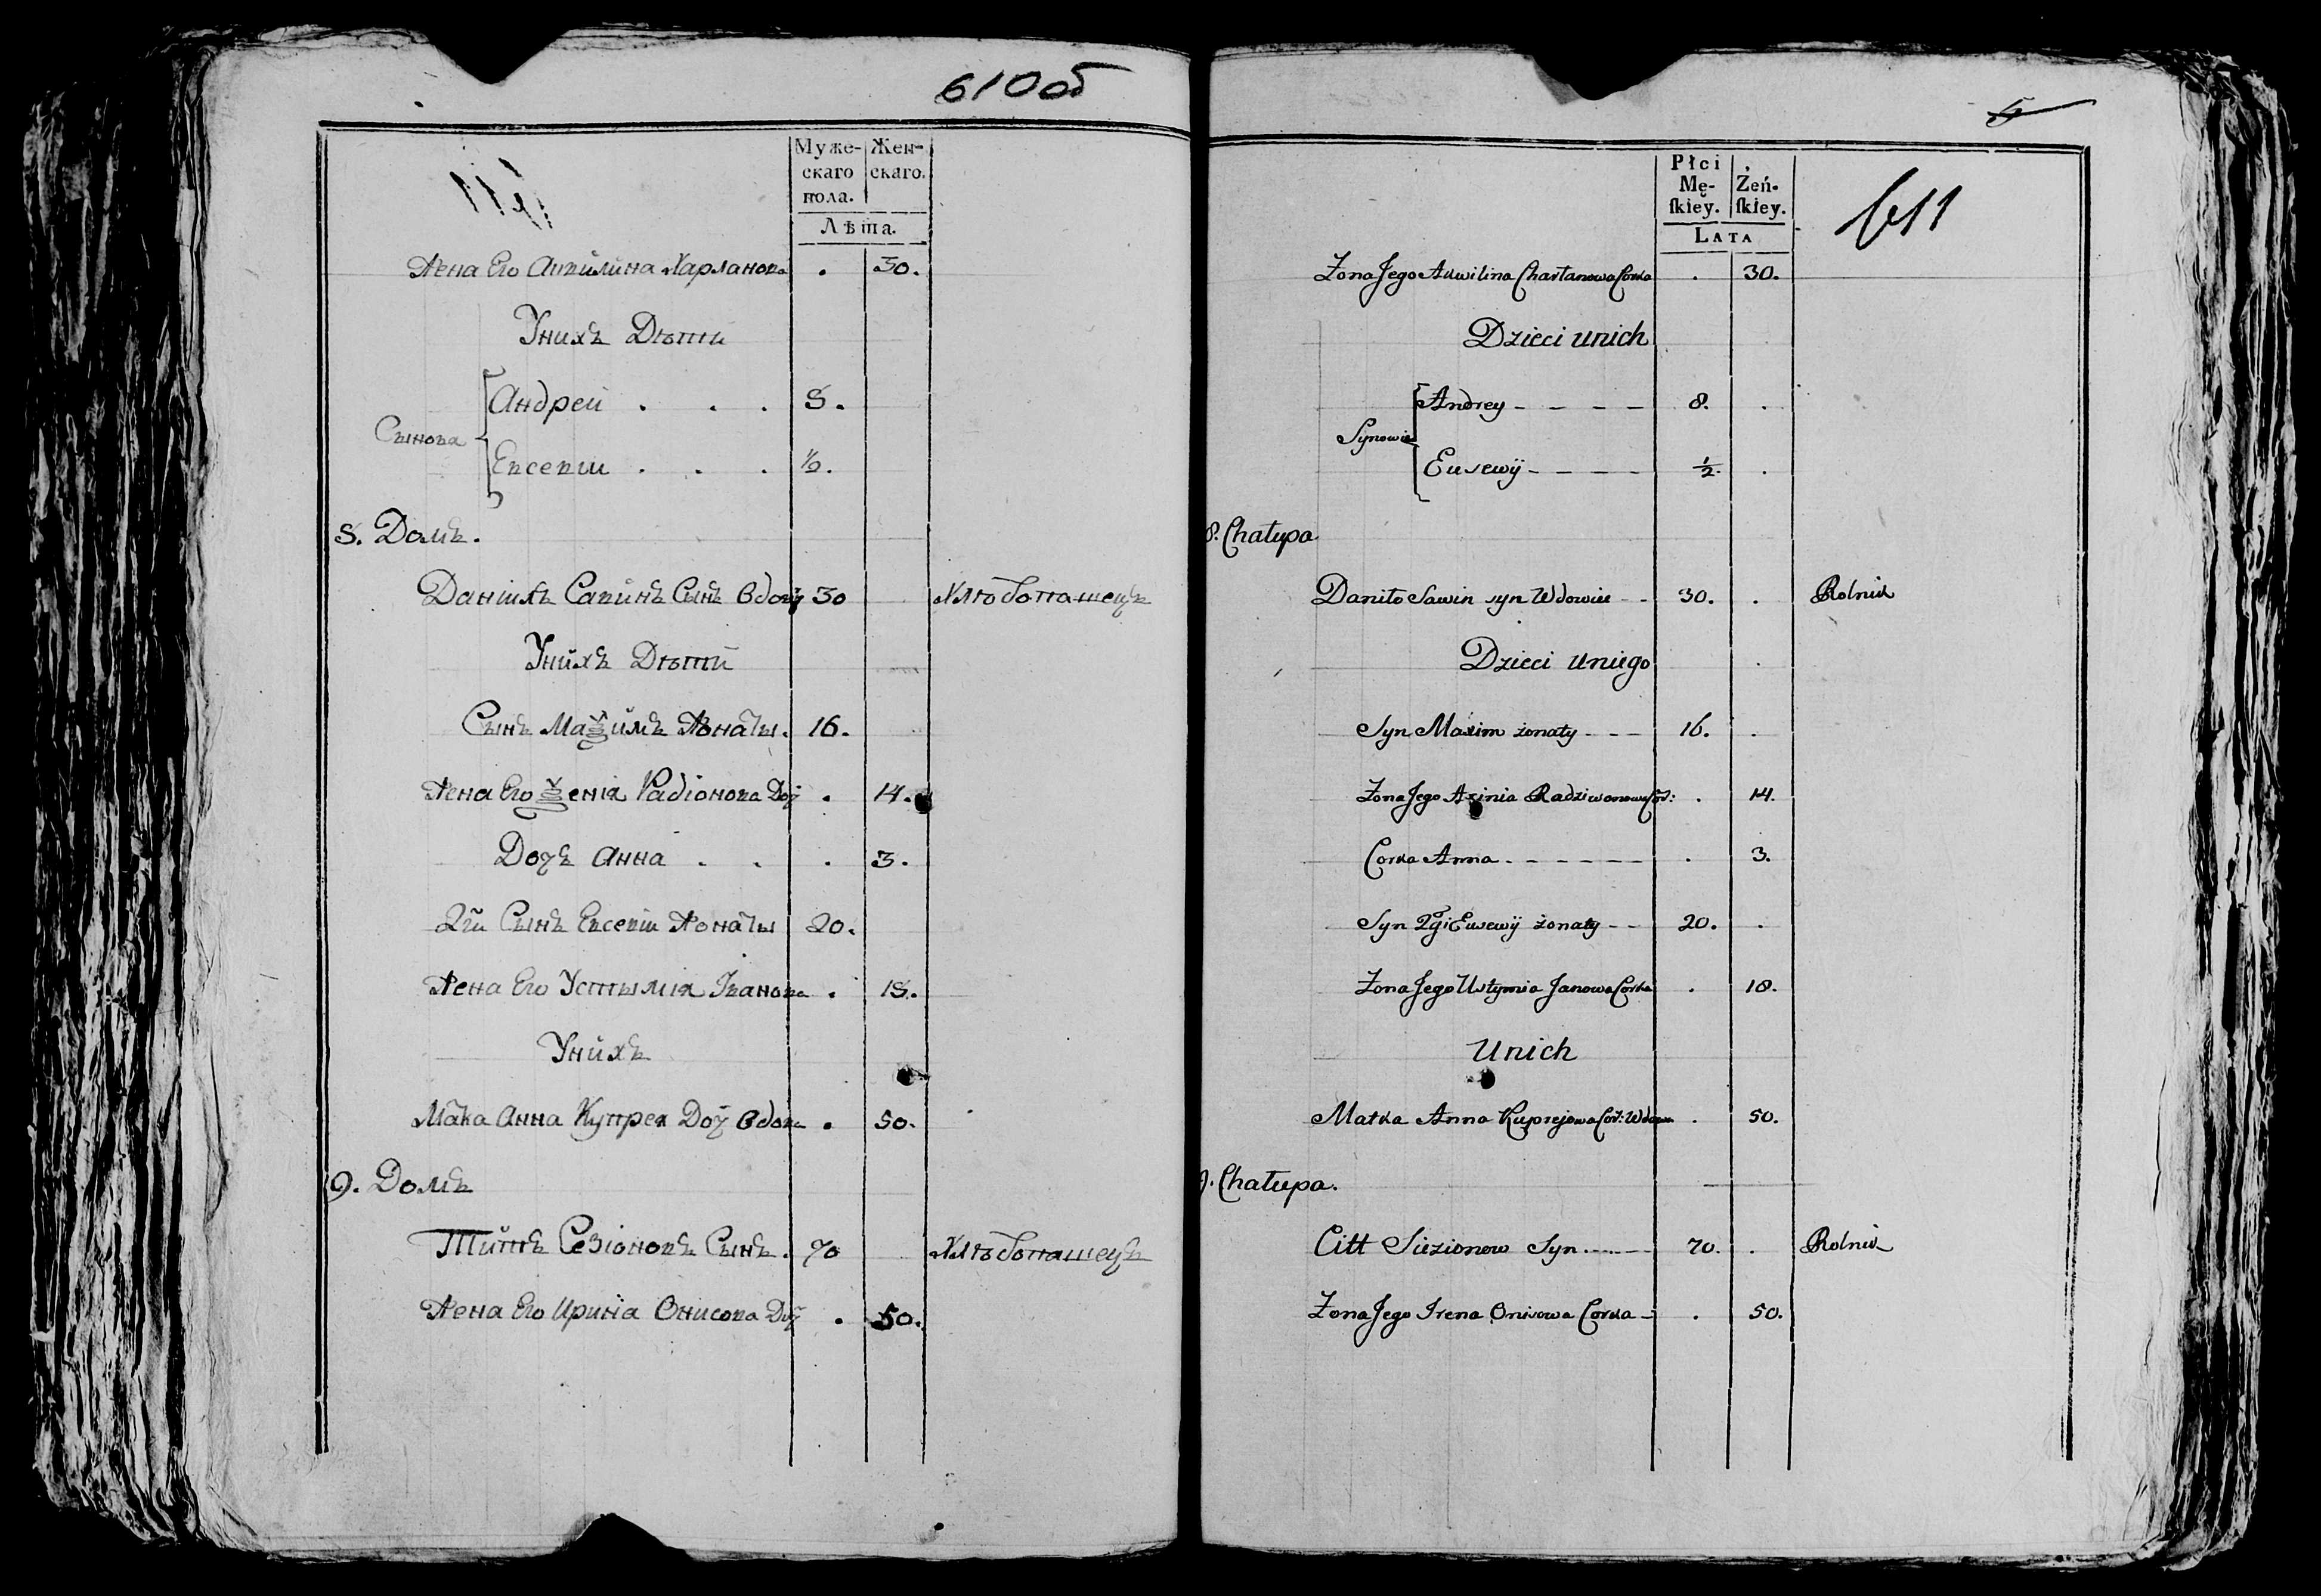 610 об
Муже-
скаго
пола.
Жен-
скаго.
Лѣта.
Жена Его Акилина Харланова . 30.
У нихъ Дѣти
Сынова
Андрей . . . 8.
Евсевiи . . . ½.
8. Домъ.
Данiилъ Савинъ Сынъ Вдовъ 30 Хлѣбопашецъ
У нихъ Дѣти
Сынъ Маѯимъ Жонаты. 16.
Жена Его Ѯенiя Радiонова Доч . 14.
Дочъ Анна . . . 3.
2й Сынъ Евсевiи Жонаты 20.
Жена Его Устымiя Iванова . 18.
У нихъ
Матка Анна Купрея Доч Вдова . 50.
9. Домъ
Титъ Сезiоновъ Сынъ. 70 Хлѣбопашецъ
Жена Его Ирина Онисова Доч . 50.
5
611
Płci
Mę-
ſkiey.
Żeń-
ſkiey.
LATA
Zona Jego Akwilina Charłanowa Corka . 30.
Dzieci u nich
Synowie
Andrey - - - - 8. .
Eusewÿ - - - - ½. .
8. Chałupa
Daniło Sawin syn Wdowiec - - 30. . Rolnik
Dzieci u niego
Syn Maxim żonaty - - - 16. .
Zona Jego Axinia Radziwonowa Cor: . 14.
Corka Anna - - - - - - . 3.
Syn 2gi Eusewÿ żonaty - - 20. .
Zona Jego Ustymia Janowa Corka . 18.
U nich
Matka Anna Kuprejowa Cor: Wdowa . 50.
9. Chałupa.
Citt Siezionow Syn - - - 70. . Rolnik
Zona Jego Irena Onisowa Corka - . 50.